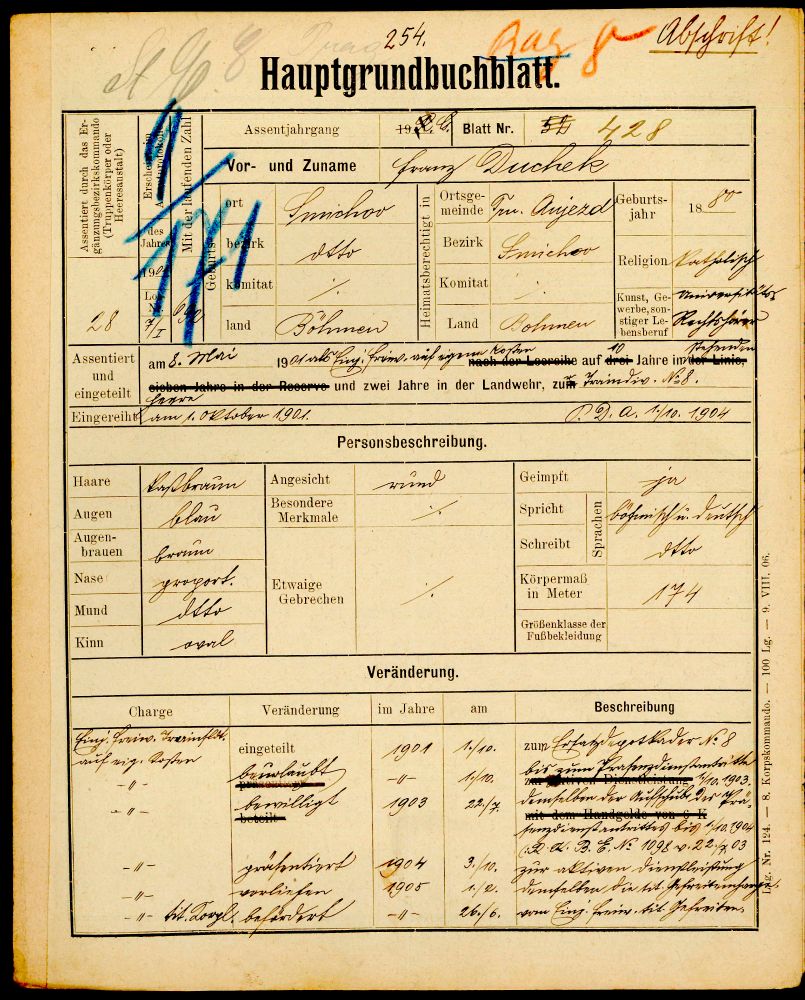 254.
Abschrift!
Hauptgrundbuchblatt.
Assentiert durch das Ergänzungsbezirkskommando (Truppenkörper oder Heeresanstalt)
28
des Jahres
Mit der laufenden Zahl
1/171
Assentjahrgang 19 Blatt Nr. 428
Vor- und Zuname Franz Duchek
Geburts-
ort Smichov
bezirk dtto
komitat ·/.
land Böhmen
Heimatsberechtigt in
Ortsgemeinde Aujezd
Bezirk Smichov
Komitat ·/.
Land Böhmen
Geburtsjahr 1880
Religion katholisch
Kunst, Gewerbe, sonstiger Lebensberuf Universitäts Rechtshörer
Assentiert und eingeteilt
am 8. Mai 1901 als Einj. Freiw. auf eigene Kosten nach der Losreihe auf drei 10 Jahre in der Linie,
sieben Jahre in der Reserve und zwei Jahre in der Landwehr, zum Traindiv. No 8.
Heere
Eingereiht am 1. Oktober 1901. P. D. A. 1/10. 1904
Personsbeschreibung.
Haare
Augen blau
Augenbrauen braun
Nase proport.
Mund dtto
Kinn oval
Angesicht rund
Besondere Merkmale ·/.
Etwaige Gebrechen ·/.
Geimpft ja
Sprachen
Spricht böhmisch u. deutsch
Schreibt dtto
Körpermaß in Meter 174
Größenklasse der Fußbekleidung
Veränderung.
Charge Veränderung im Jahre am Beschreibung
Einj. Freiw. Trainsold. auf eig. Kosten eingeteilt 1901 1./10. zum Ersatzdepotkader No 8
-"- beurlaubt -"- 1./10. bis zum Präsenzdienstantritte 1/10. 1903.
-"- bewilligt 1903 22./7. demselben der Aufschub des Prä-
mit dem Handgelde von 6 K
beteilt
senzdienstantrittes bis 1/10. 1904
B. E. No 1098 v. 22./7. 03
-"- präsentiert 1904 3./10. zur aktiven Dienstleistung
-"- verliehen 1905 1./2. demselben die tit. Gefreitencharge.
-"- tit. Korpl. befördert -"- 26./6. vom Einj. Freiw. tit. Gefreiten.
Lag. Nr. 124. — 8. Korpskommando. — 100 Lg. — 9. VIII. 06.